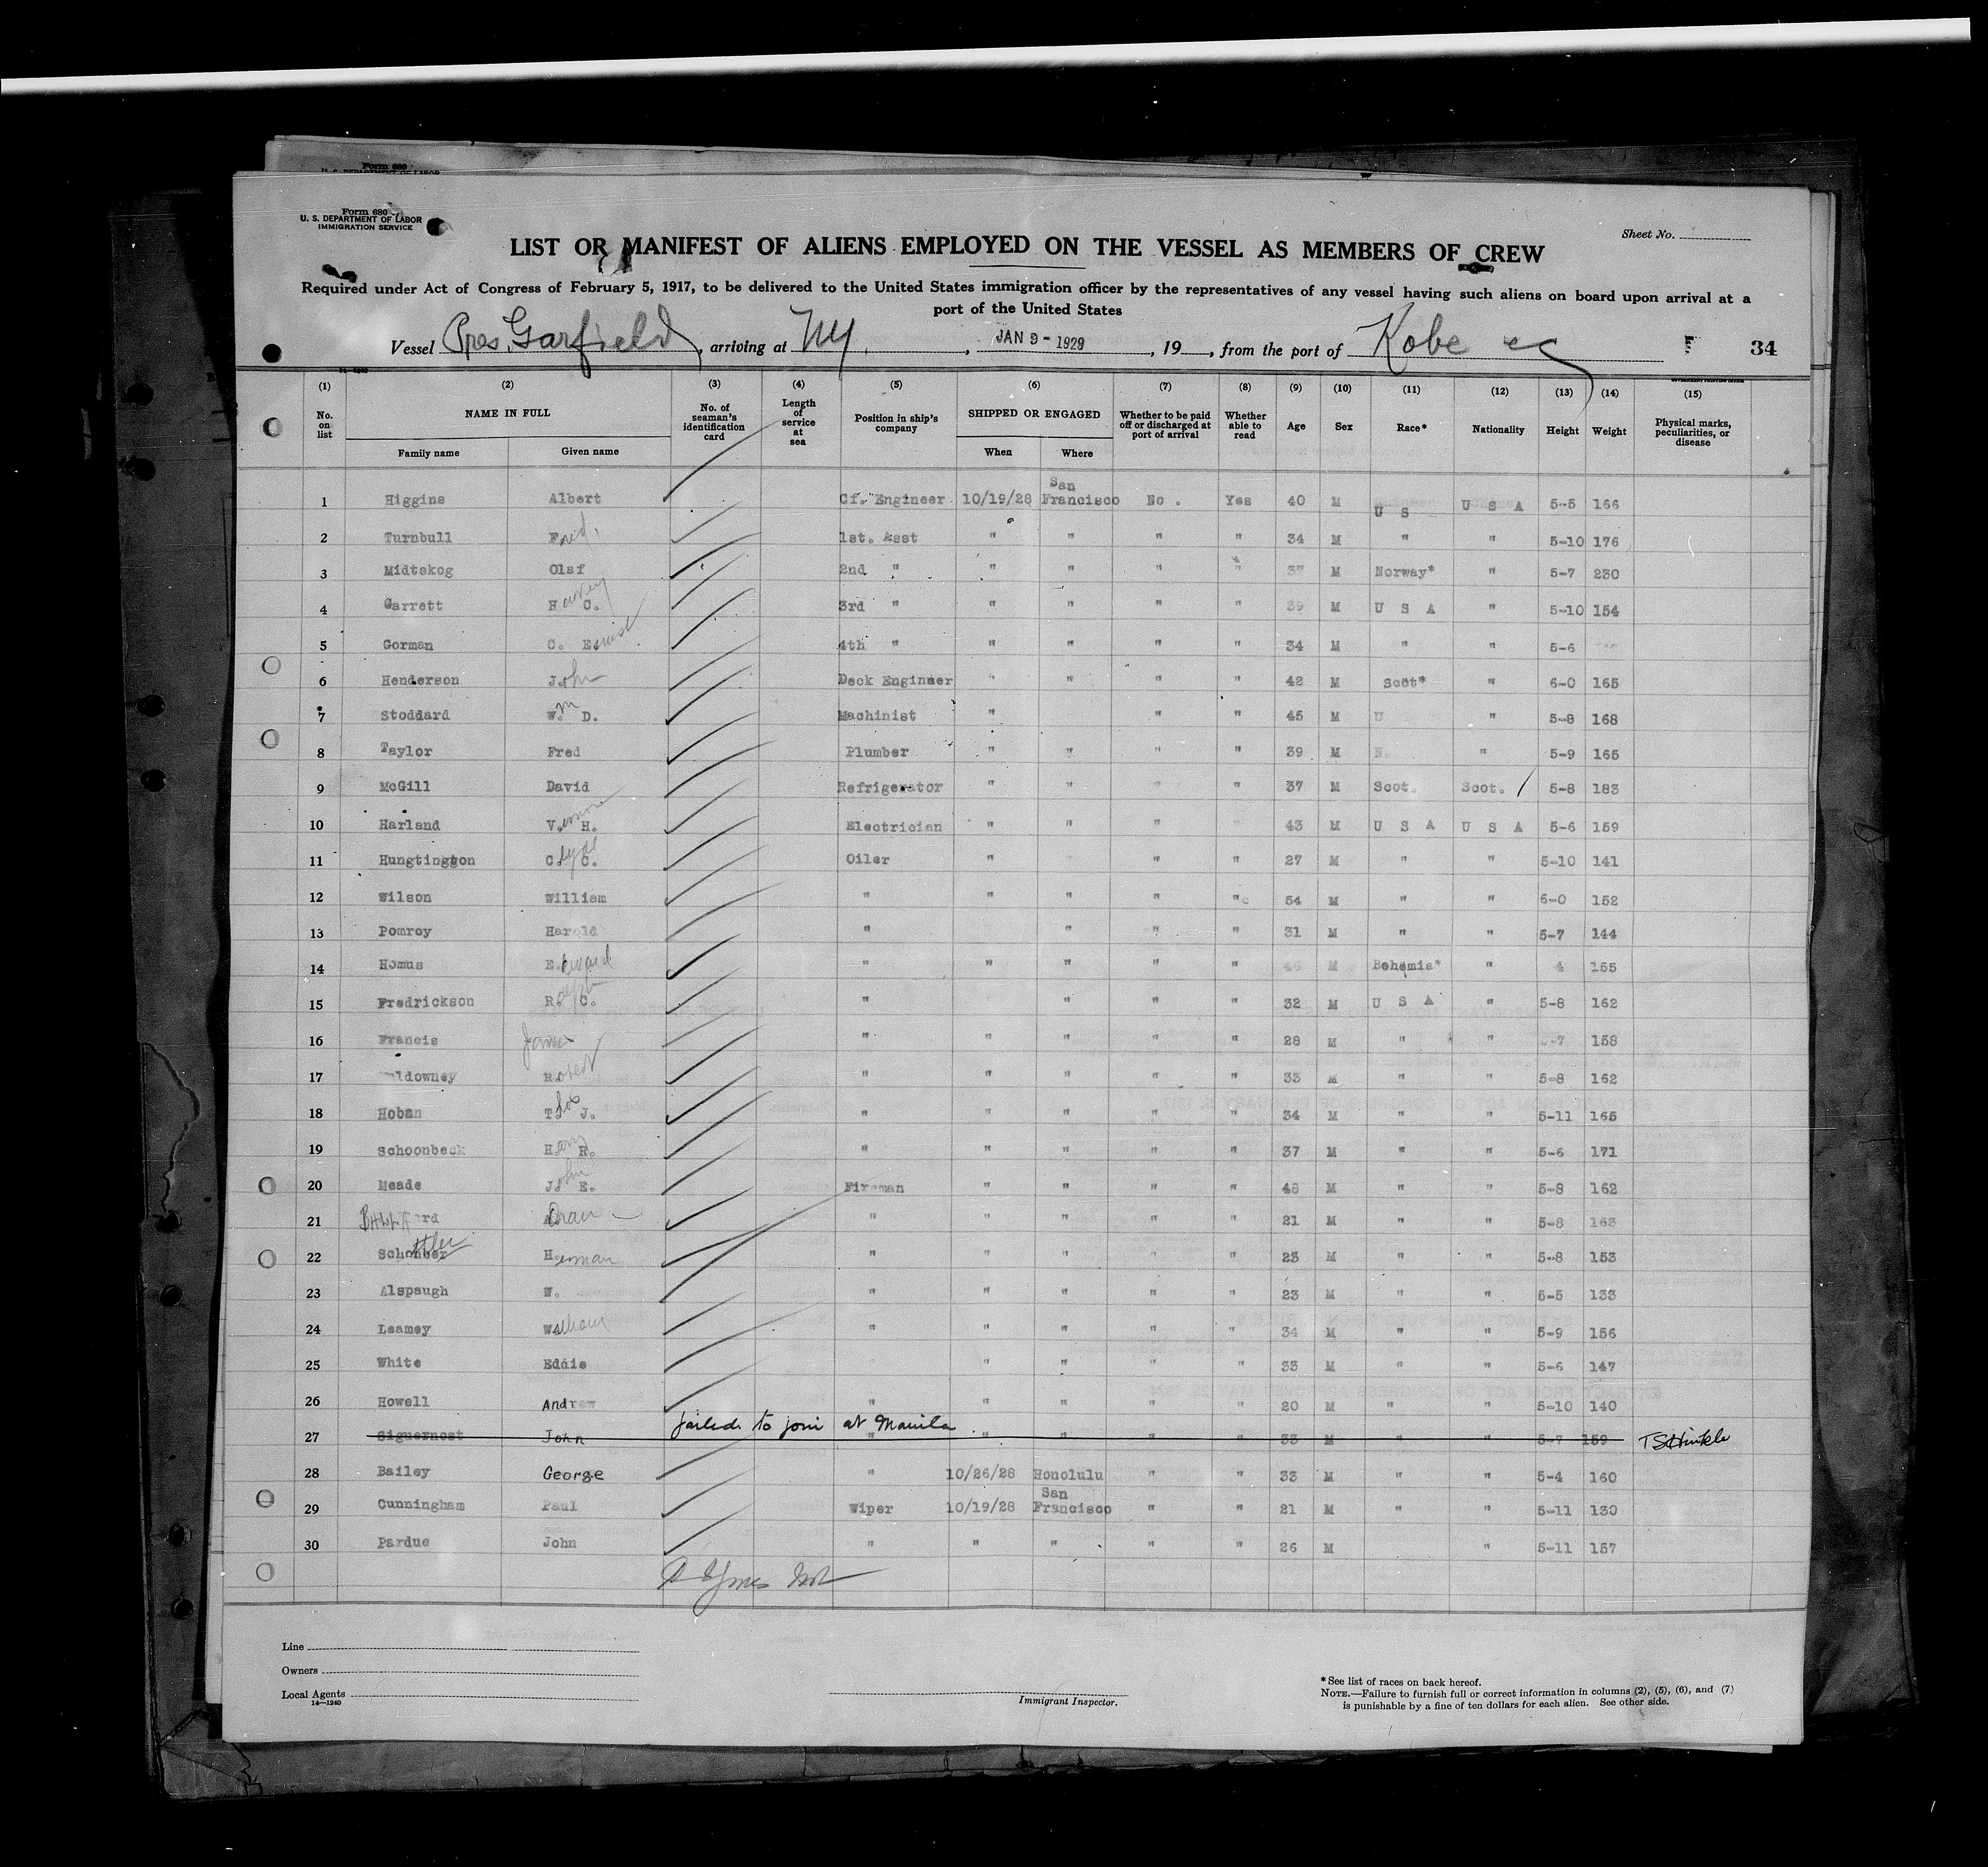 Form 680
U. S. DEPARTMENT OF LABOR
Form 680
U. S. DEPARTMENT OF LABOR
IMMIGRATION SERVICE
Sheet No.
LIST OR MANIFEST OF ALIENS EMPLOYED ON THE VESSEL AS MEMBERS OF CREW
Required under Act of Congress of February 5, 1917, to be delivered to the United States immigration officer by the representatives of any vessel having such aliens on board upon arrival at a
port of the United States
Vessel Pres. Garfield, arriving at NY, JAN 9 - 1929, 19, from the port of Kobe 34
14—1240
(1) (2) (3) (4) (5) (6) (7) (8) (9) (10) (11) (12) (13) (14) (15)
No. on list NAME IN FULL No. of seaman's identification card Length of service at sea Position in ship's company SHIPPED OR ENGAGED Whether to be paid off or discharged at port of arrival Whether able to read Age Sex Race* Nationality Height Weight Physical marks, peculiarities, or disease
Family name Given name When Where
1 Higgins Albert Cf. Engineer 10/19/28 San Francisco No. Yes 40 M U S U S A 5-5 166
2 Turnbull Fred. 1st. Asst " " " " 34 M " " 5-10 176
3 Midtskog Olaf 2nd " " " " " 37 M Norway* " 5-7 230
4 Garrett Harvey C. 3rd " " " " " 39 M U S A " 5-10 154
5 Gorman C. E. 4th " " " " " 34 M " " 5-6
6 Henderson John Deck Engineer " " " " 42 M Scot* " 6-0 165
7 Stoddard Wm. D. Machinist " " " 45 M U " 5-8 168
8 Taylor Fred Plumber " " " " 39 M N. " 5-9 165
9 McGill David Refrigerator " " " " 37 M Scot. Scot. / 5-8 183
10 Harland V. H. Electrician " " " 43 M U S A U S A 5-6 159
11 Hungtington Clyde C. Oiler " " " 27 M " " 5-10 141
12 Wilson William " " " " " 54 M " " 6-0 152
13 Pomroy Harold " " " " 31 M " " 5-7 144
14 Homus Edward " " " " " 46 M Bohemia* " 4 155
15 Fredrickson Ralph C. " " " " 32 M U S A " 5-8 162
16 Francis James " " " " " 28 M " " -7 158
17 ldowney Robert " " " " " 33 M " " 5-8 162
18 Hoban T. J. " " " " " 34 M " " 5-11 165
19 Schoonbeck Harry R. " " " " " 37 M " " 5-6 171
20 Meade John E. Fireman " " " " 48 M " " 5-8 162
21 rd " " " " " 21 M " " 5-8 163
22 Herman " " " " " 23 M " " 5-8 153
23 Alspaugh W. " " " " " 23 M " " 5-5 133
24 Leamey William " " " " " 34 M " " 5-9 156
25 White Eddie " " " " 33 M " " 5-6 147
26 Howell Andrew " " " " " 20 M " " 5-10 140
failed to join at Manila.
27 Siguernost John " " " 33 M " " 5-7 159 TSHinkle
28 Bailey George " 10/26/28 Honolulu " " 33 M " " 5-4 160
29 Cunningham Paul Wiper 10/19/28 San Francisco " " 21 M " " 5-11 130
30 Pardue John " " " " " 26 M " 5-11 157
Line
Owners
Local Agents
14—1240
Immigrant Inspector.
* See list of races on back hereof.
NOTE.—Failure to furnish full or correct information in columns (2), (5), (6), and (7)
is punishable by a fine of ten dollars for each alien. See other side.